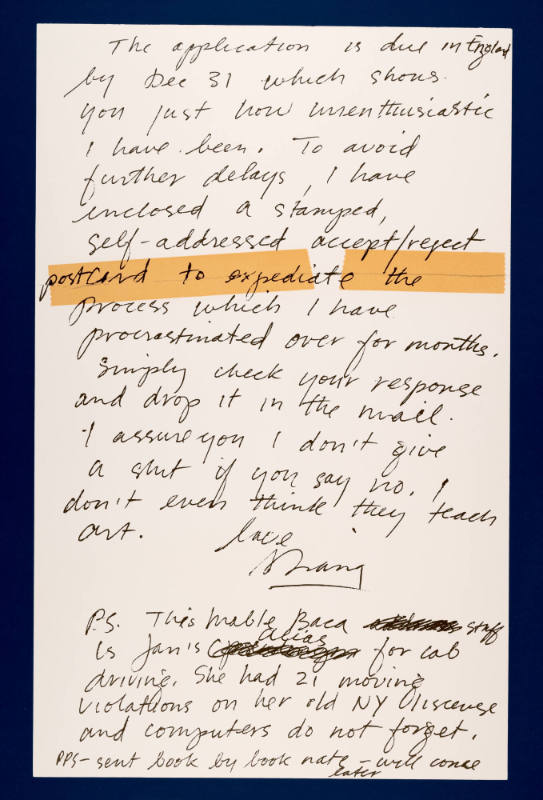 The application is due in England
by Dec 31 which shows
you just how unenthusiastic
I have been. To avoid
further delays, I have
enclosed a stamped,
self-addressed accept/reject
postcard to expediate the
process which I have
procrastinated over for months.
Simply check your response
and drop it in the mail.
I assure you I don't give
a shit if you say no. I
don't even think they teach
art.
love
P.S. This Mable Baca staff
is Jan's alias for cab
driving. She had 21 moving
violations on her old NY Oliscense
and computers do not forget.
PPS- sent book by book rate - will come
later